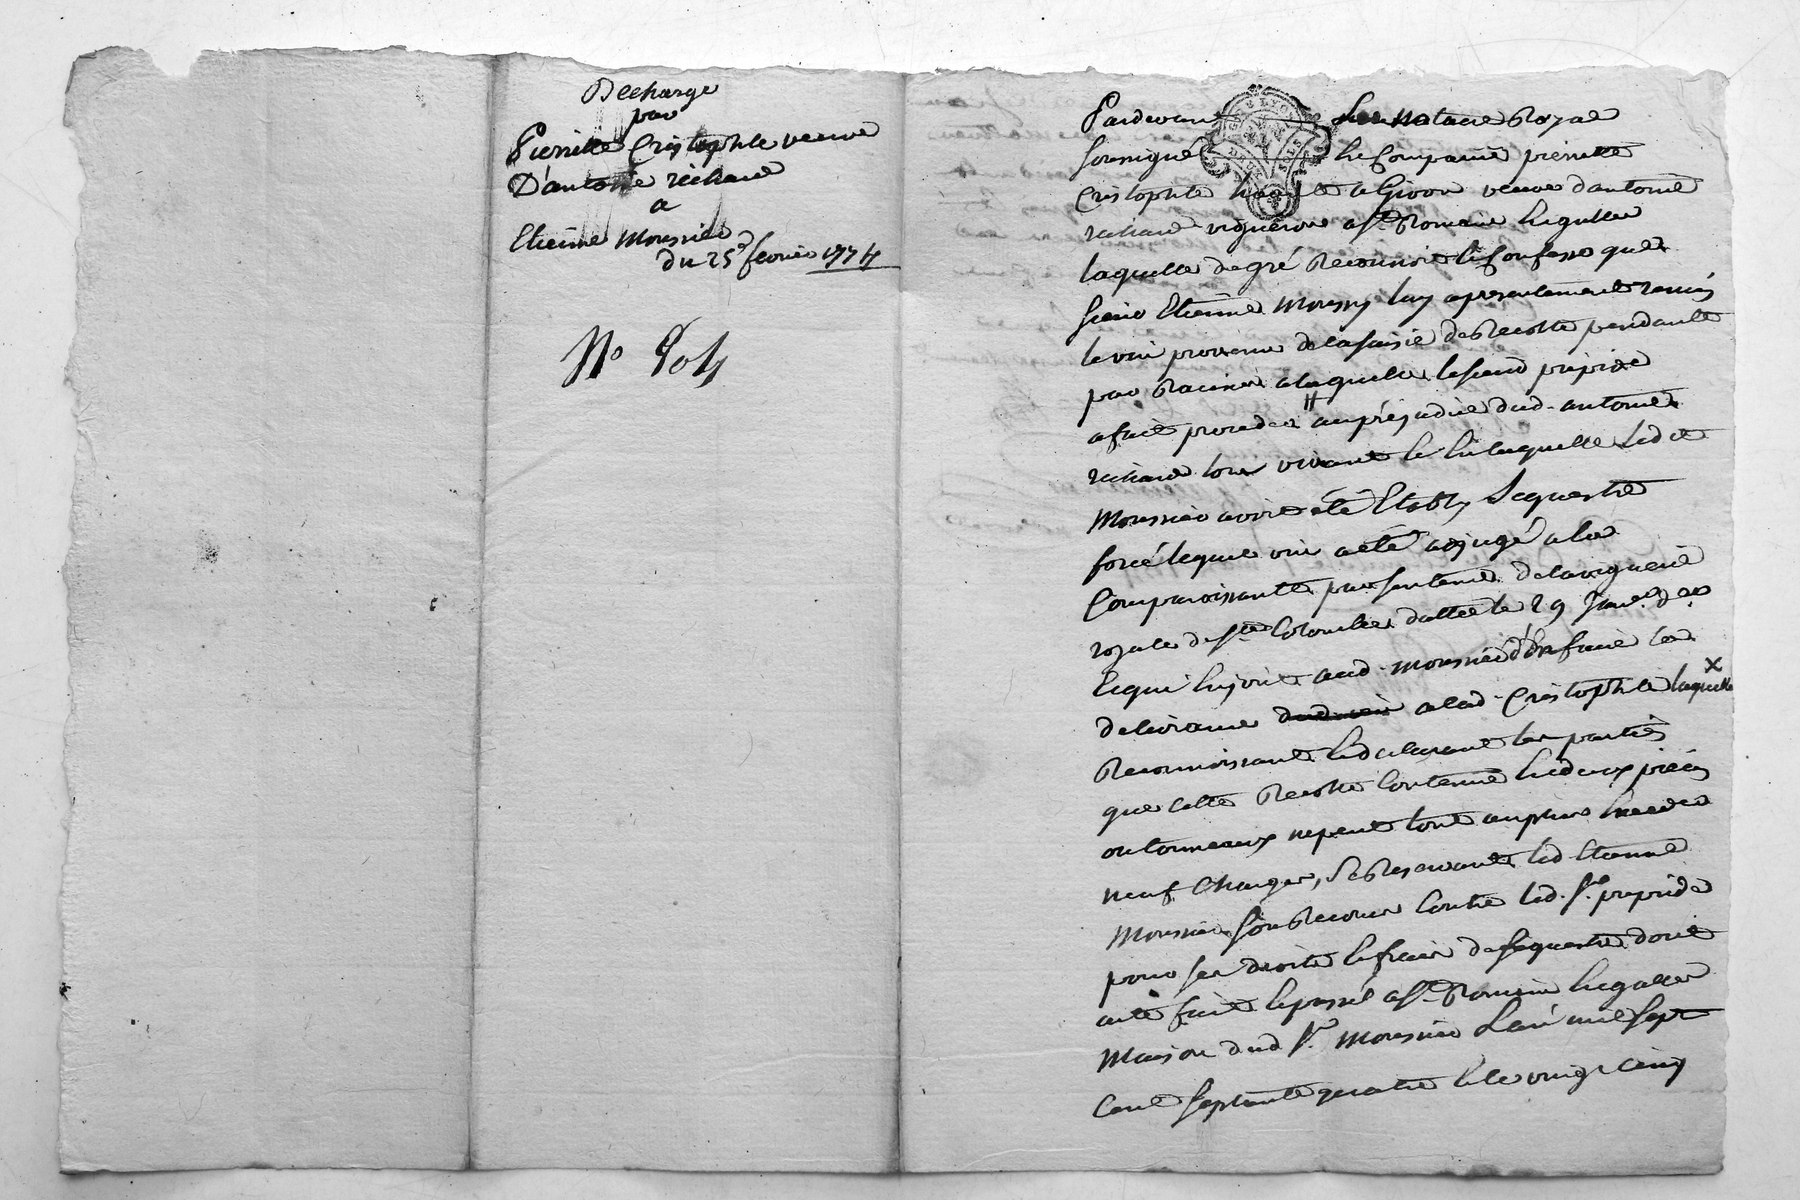 Decharge
par
Pierrette Cristophle veuve
D'antoine richard
a
Etienne Moussier
du 25e fevrier 1774
No 804
GEN. DE LYON
DEUX SOLS
Pardevant Les Notaire Royal
soussigné Est Comparüe pierrette
Cristophle a Givor veuve d'antoine
richard vigneron a St. Romain En gallier
laquelle de gré Reconnoit Et Confesse que
sieur Etienne Moussy luy a presentement remis
le vin provenu de la saisie de Recolte pendante
par Racines a laquelle le sieur
a fait proceder au préjudice dud. antoine
richard lors vivant Et En laquelle led et
Moussier avoit eté Etably Sequestre
forcé lequel vin a eté adjugé a la
Comparoissante par sentence de la viguerie
royale de Ste. Colombe dattée le 29 Janv. der
Et qui Enjoint aud. moussier d'En faire la
delivrance dud. vin a lad. Cristophle laquelle x
Reconnoissant Et declarant les parties
que cette Recolte Contenue En deux pieces
ou tonneaux ne peut tout au plus Exceder
neuf Charges, Se Reservant led. Etienne
Moussier son Recours Contre led. Sr.
pour ses droits Et frais de sequestre dont
acte fait Et passé a St. Romain En gallier
Maison dud. Sr. Moussier L'an mil sept
Cent septante quatre Et le vingt Cinq